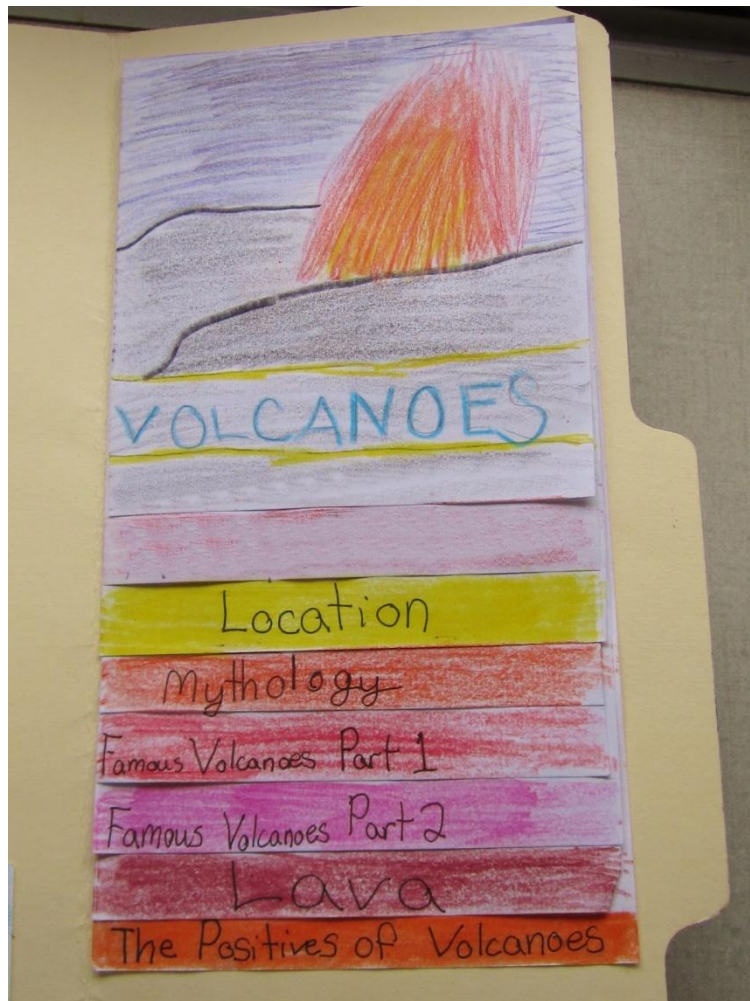 VOLCANOES
Location
Mythology
Famous Volcanoes Part 1
Famous Volcanoes Part 2
Lava
The Positives of Volcanoes